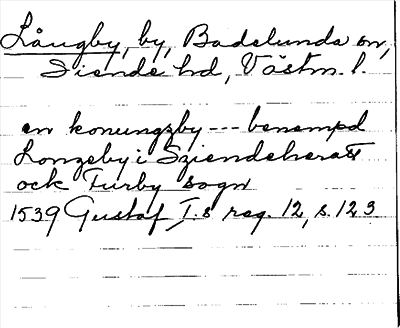 Långby, by, Badelunda sn,
Siende hd, Västm. l.
en konungzby --- benempd
Longeby i Sziendeheratt
ock Turby sogn
1539 Gustaf I.s reg. 12, s. 123